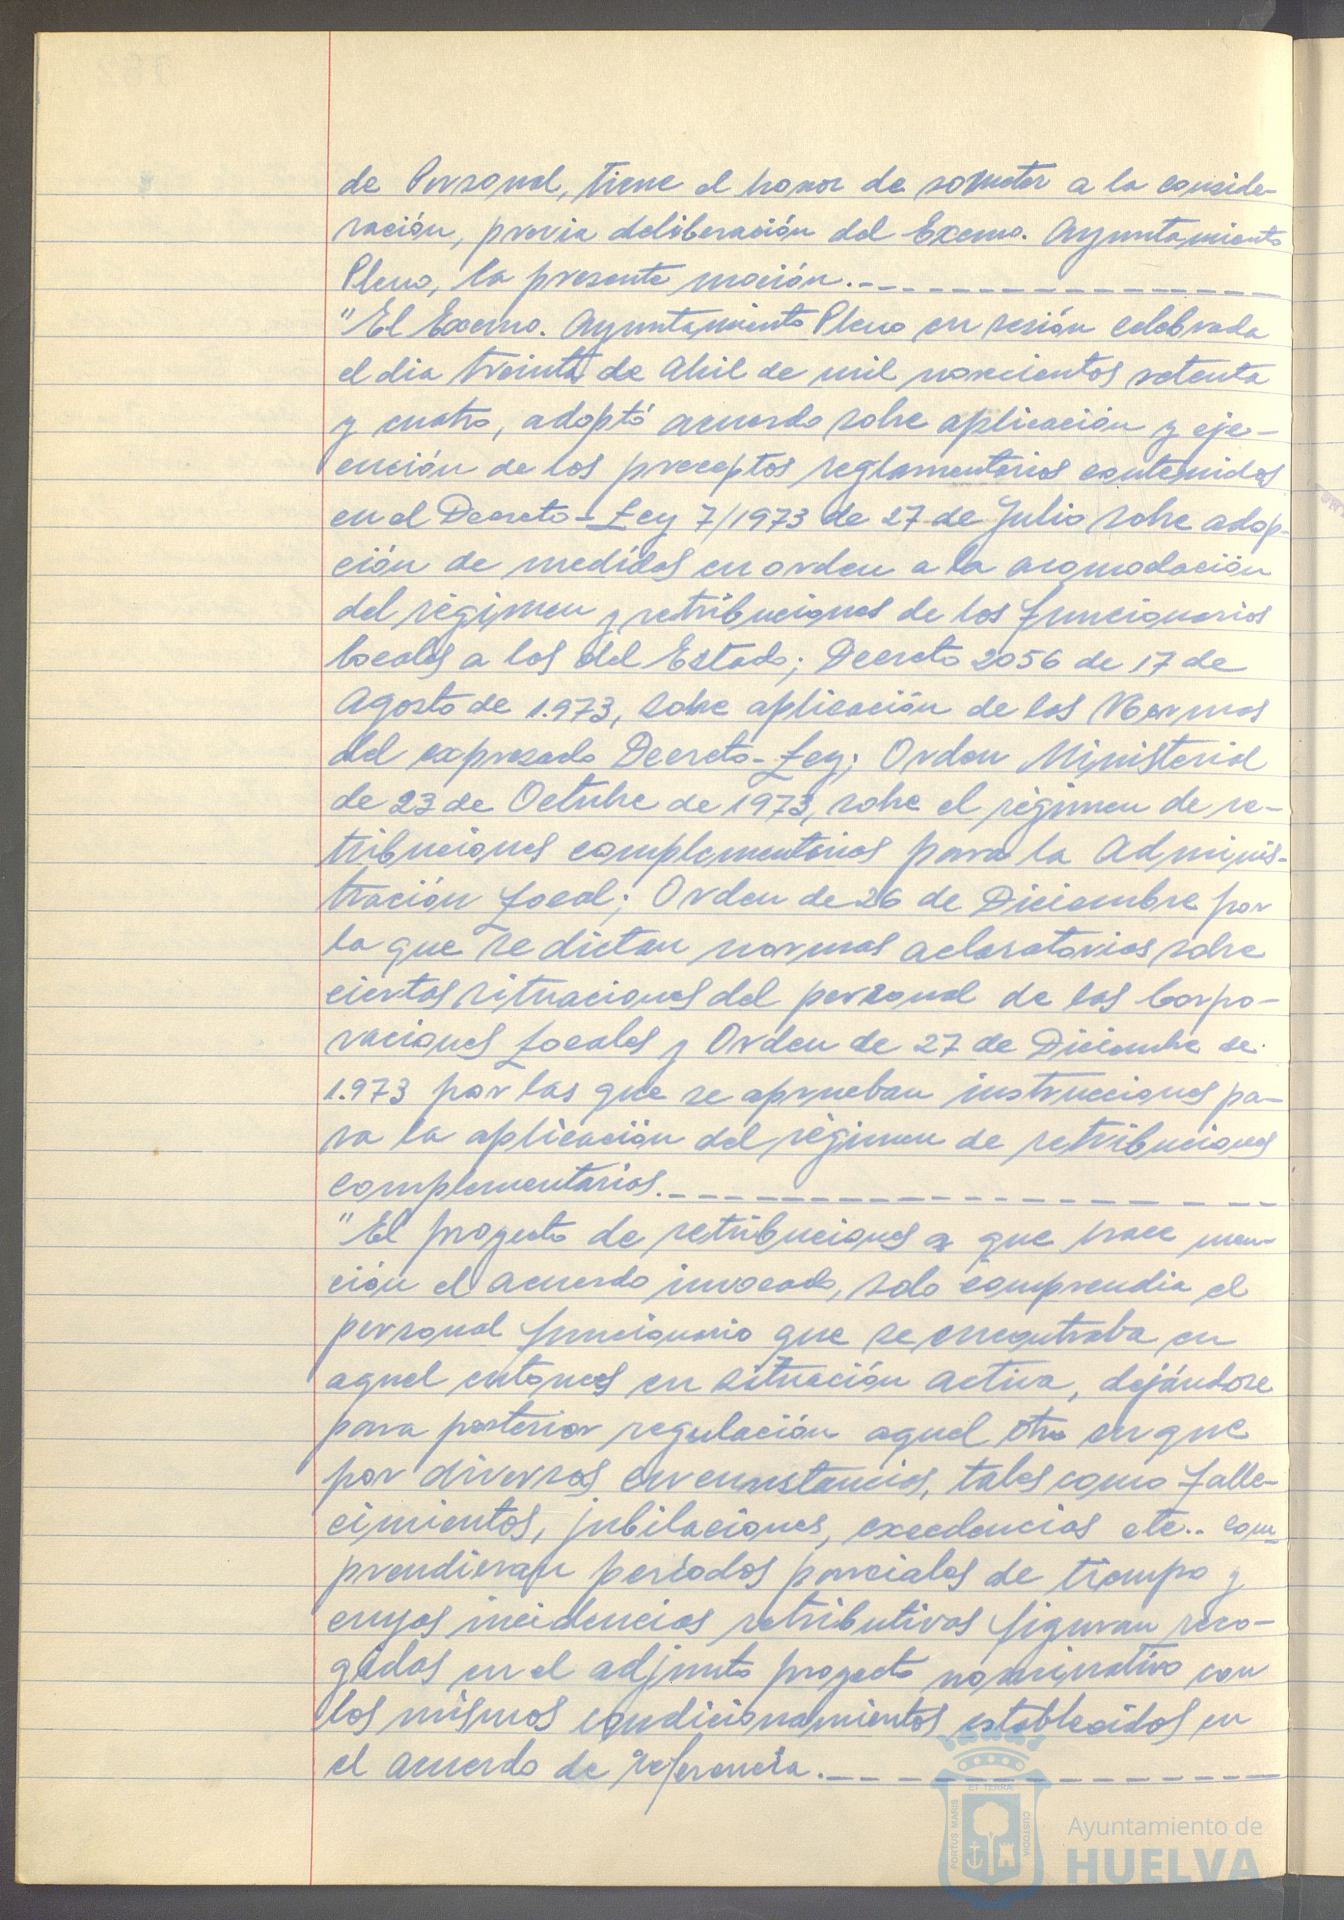 de Personal, tiene el honor de someter a la conside-
ración, previa deliberación del Excmo. Ayuntamiento
Pleno, la presente moción.
"El Excmo. Ayuntamiento Pleno en sesión celebrada
el dia treinta de Abril de mil novecientos setenta
y cuatro, adoptó acuerdo sobre aplicación y eje-
cución de los preceptos reglamentarios contenidos
en el Decreto-Ley 7/1973 de 27 de Julio sobre adop-
ción de medidas en orden a la acomodación
del régimen y retribuciones de los funcionarios
locales a los del Estado; Decreto 2056 de 17 de
Agosto de 1.973, sobre aplicación de las Normas
del expresado Decreto-Ley; Orden Ministerial
de 23 de Octubre de 1973, sobre el régimen de re-
tribuciones complementarias para la Adminis-
tración Local; Orden de 26 de Diciembre por
la que se dictan normas aclaratorias sobre
ciertas situaciones del personal de las Corpo-
raciones Locales y Orden de 27 de Diciembre de
1.973 por las que se aprueban instrucciones pa-
ra la aplicación del régimen de retribuciones
complementarias.
"El proyecto de retribuciones a que hace men-
ción el acuerdo invocado, solo comprendia el
personal funcionario que se encontraba en
aquel entonces en situación activa, dejándose
para posterior regulación aquel otro en que
por diversas circunstancias, tales como falle-
cimientos, jubilaciones, excedencias etc.. com-
prendieran períodos parciales de tiempo y
cuyas incidencias retributivas figuran reco-
gidas en el adjunto proyecto nominativo con
los mismos condicionamientos establecidos en
el acuerdo de referencia.
PORTUS MARIS
ET TERRAE
CUSTODIA
Ayuntamiento de
HUELVA